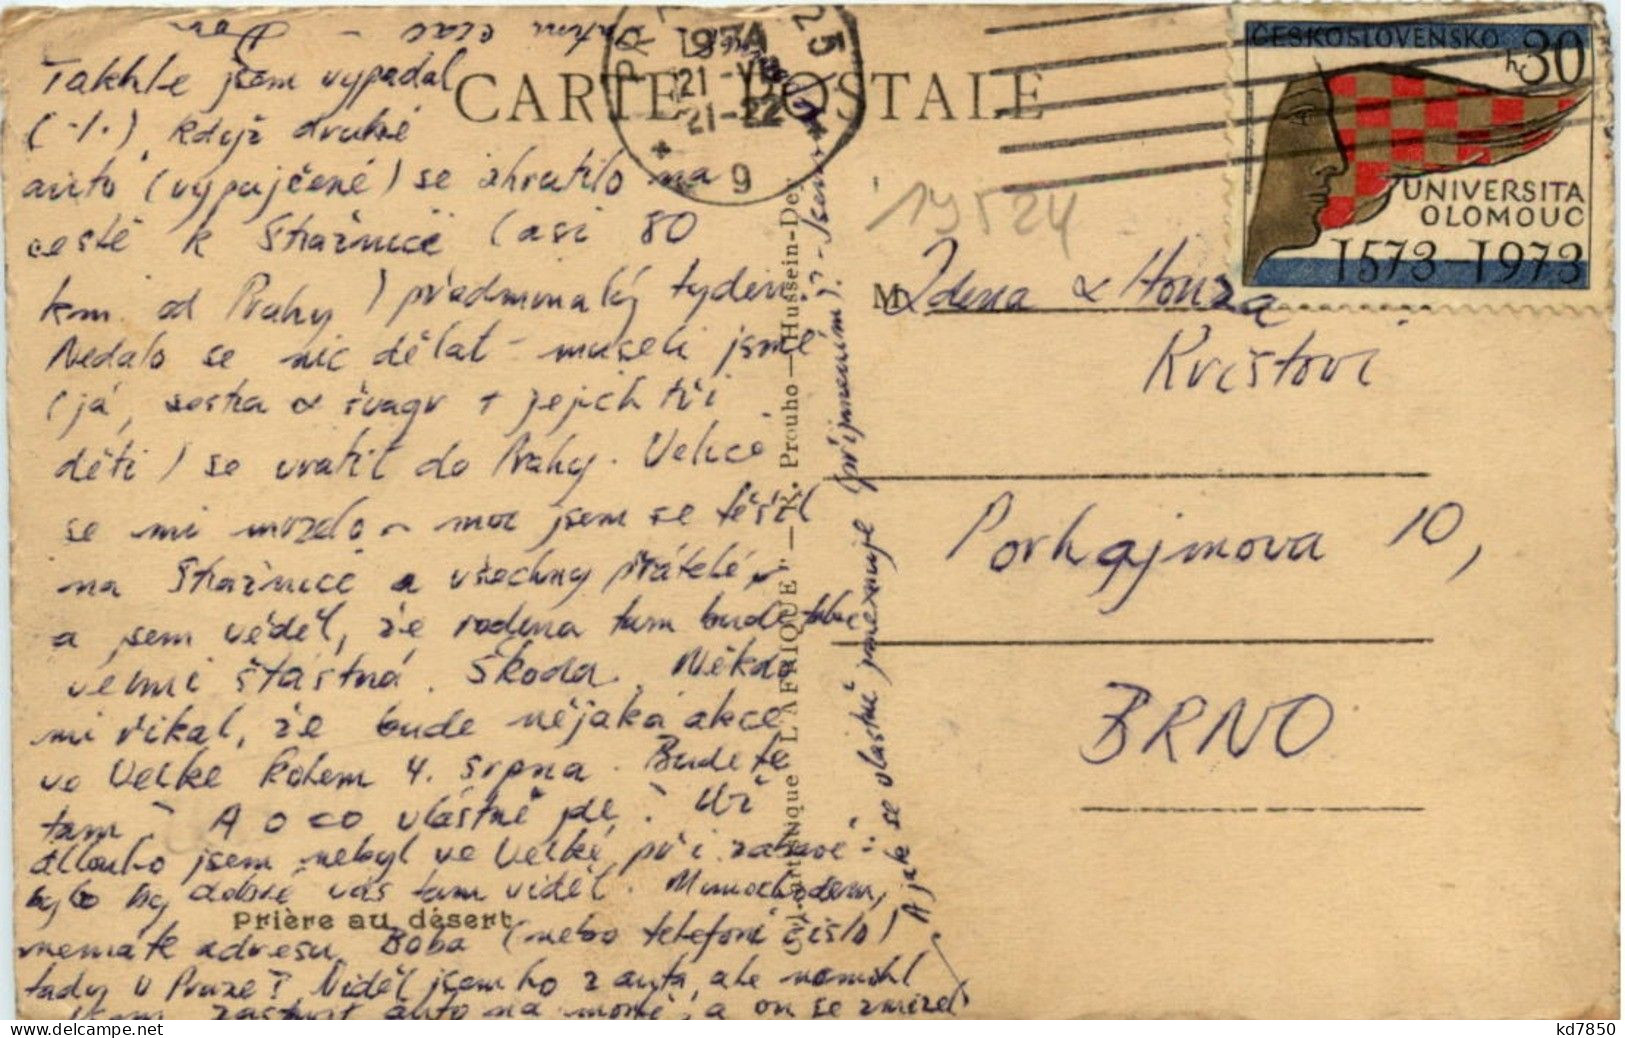 Takhle jsem vypadal
(-1.), když druhé
auto (vypůjčené) se zhroutilo na
cestě k Strážnici (asi 80
km od Prahy) předminulý týden.
Nedalo se nic dělat - museli jsme
(já, sestra & švagr + jejich tři
děti) se vrátit do Prahy. Velice
se mi nozdalo - moc jsem se těšil
na Strážnici a všechny přátelé,
a jsem věděl, že rodina tam bude
velmi šťastná. Škoda. Někdo
mi říkal, že bude nějaká akce
ve Velké kolem 4. srpna. Budete
tam? A o co vlastně jde? Už
dlouho jsem nebyl ve Velké při zábavě -
bylo by dobré vás tam vidět. Mimochodem,
nemáte adresu Boba (nebo telefoní číslo)
tady v Praze? Viděl jsem ho z auta, ale nemohl
jsem zastavit auto na mostě, a on se zmizel
A jak se vlastně jmenuje (příjmením)? - Jsem
CARTE POSTALE
1974
21-22
25
9
ČESKOSLOVENSKO
30 h
UNIVERSITA
OLOMOUC
1573-1973
19524
M Zdena & Honza
Kvištovi
Porhajmova 10,
BRNO
Prière au désert
Collection Artistique "L'AFRIQUE" - R. Prouho - Hussein-Dey
kd7850